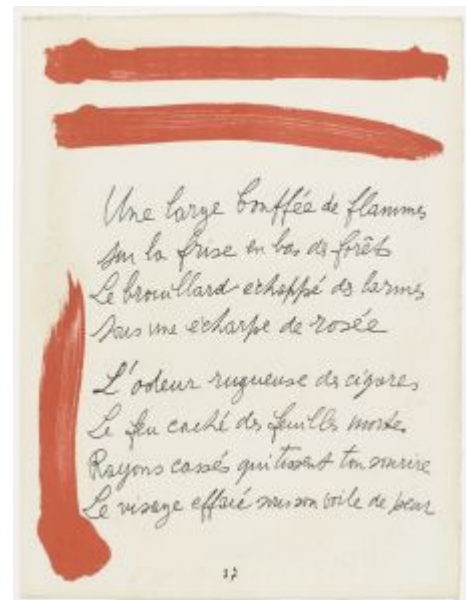 Une large bouffée de flammes
sur la frise en bas des forêts
Le brouillard échappé des larmes
sous une écharpe de rosée
L'odeur rugueuse des cigares
Le feu caché des feuilles mortes
Rayons cassés qui tissent ton sourire
Le visage effaré sous son voile de peur
37